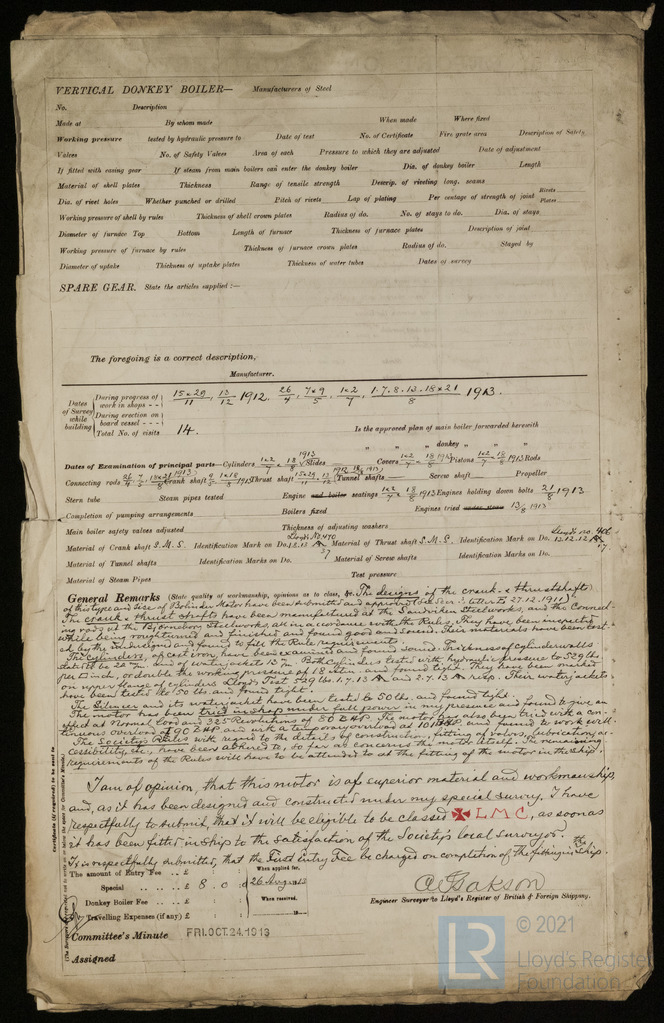 VERTICAL DONKEY BOILER— Manufacturers of Steel
No. Description
Made at By whom made When made Where fixed
Working pressure tested by hydraulic pressure to Date of test No. of Certificate Fire grate area Description of Safety
Valves No. of Safety Valves Area of each Pressure to which they are adjusted Date of adjustment
If fitted with easing gear If steam from main boilers can enter the donkey boiler Dia. of donkey boiler Length
Material of shell plates Thickness Range of tensile strength Descrip. of riveting long. seams
Dia. of rivet holes Whether punched or drilled Pitch of rivets Lap of plating Per centage of strength of joint Rivets Plates
Working pressure of shell by rules Thickness of shell crown plates Radius of do. No. of stays to do. Dia. of stays
Diameter of furnace Top Bottom Length of furnace Thickness of furnace plates Description of joint
Working pressure of furnace by rules Thickness of furnace crown plates Radius of do. Stayed by
Diameter of uptake Thickness of uptake plates Thickness of water tubes Dates of survey
SPARE GEAR. State the articles supplied:—
The foregoing is a correct description,
Manufacturer.
Dates of Survey while building
During progress of work in shops - - 15 & 29/11, 13/12 1912. 26/4, 7 & 9/5, 1 & 2/7, 1. 7. 8. 13. 18 & 21/8 1913.
During erection on board vessel - - -
Total No. of visits 14. Is the approved plan of main boiler forwarded herewith
" " " donkey " " "
Dates of Examination of principal parts—Cylinders 1 & 2/7 18/8 1913 Slides Covers 1 & 2/7 18/8 1913 Pistons 1 & 2/7 18/8 1913 Rods
Connecting rods Crank shaft Thrust shaft Tunnel shafts Screw shaft Propeller
Stern tube Steam pipes tested Engine and boiler seatings 1 & 2/7 18/8 1913 Engines holding down bolts 21/8 1913
Completion of pumping arrangements Boilers fixed Engines tried under steam 13/8 1913
Main boiler safety valves adjusted Thickness of adjusting washers
Material of Crank shaft S.M.S. Identification Mark on Do. Material of Thrust shaft S.M.S. Identification Mark on Do.
Material of Tunnel shafts Identification Marks on Do. Material of Screw shafts Identification Marks on Do.
Material of Steam Pipes Test pressure
General Remarks (State quality of workmanship, opinions as to class, &c. The designs of the crank- & thrustshafts
of this type and size of Bolinder Motor have been submitted and approved (Secr: letter 27.12.1912)
The crank & thrust shafts have been manufactured at the Sandviken Steelworks, and the connect-
ing rods at the Björneborg Steelworks, all in accordance with the Rules. They have been inspected
while being roughturned and finished and found good and sound. Their materials have been test-
ed by the undersigned and found to fill the Rule requirements.
The Cylinders, of cast iron, have been examined and found sound. Thickness of cylinder walls
stated to be 22 m and of waterjacket 13 m. Both cylinders tested with hydraulic pressure to 529 lbs.
per inch, or double the working pressure of 18 atm. and found tight. They have been marked
on upper flange of cylinders Lloyds Test 529 lbs. 1.7.13 and 2.7.13 resp. Their waterjackets
have been tested to 50 lbs. and found tight.
The Silencer and its waterjacket have been tested to 50 lbs. and found tight.
The motor has been tried in shop under full power in my presence and found to give an
effect at normal load and 325 Revolutions of 80 BHP. The motor has also been tried with a con-
tinuous overload of 90 BHP and with a temporary overload and found to work well.
The Society's Rules with regard to the details of construction, fitting of valves, lubrication, ac-
cessibility, etc., have been adhered to, so far as concerns the motor itself. The remaining
requirements of the Rules will have to be attended to at the fitting of the motor in the ship.
I am of opinion, that this motor is of superior material and workmanship,
and, as it has been designed and constructed under my special survey, I have
respectfully to submit, that it will be eligible to be classed ✠ LMC, as soon as
it has been fitted in ship to the satisfaction of the Society's local surveyor.
It is respectfully submitted, that the First Entry Fee be charged on completion of the fitting in the ship.
The amount of Entry Fee .. £ : : When applied for,
Special .. £ 8 . 0 . 0 26 Aug 1913
Donkey Boiler Fee .. £ : : When received,
Travelling Expenses (if any) £ : :
Engineer Surveyor to Lloyd's Register of British & Foreign Shipping.
Committee's Minute FRI. OCT. 24. 1913
Assigned
© 2021
LR Lloyd's Register
Foundation